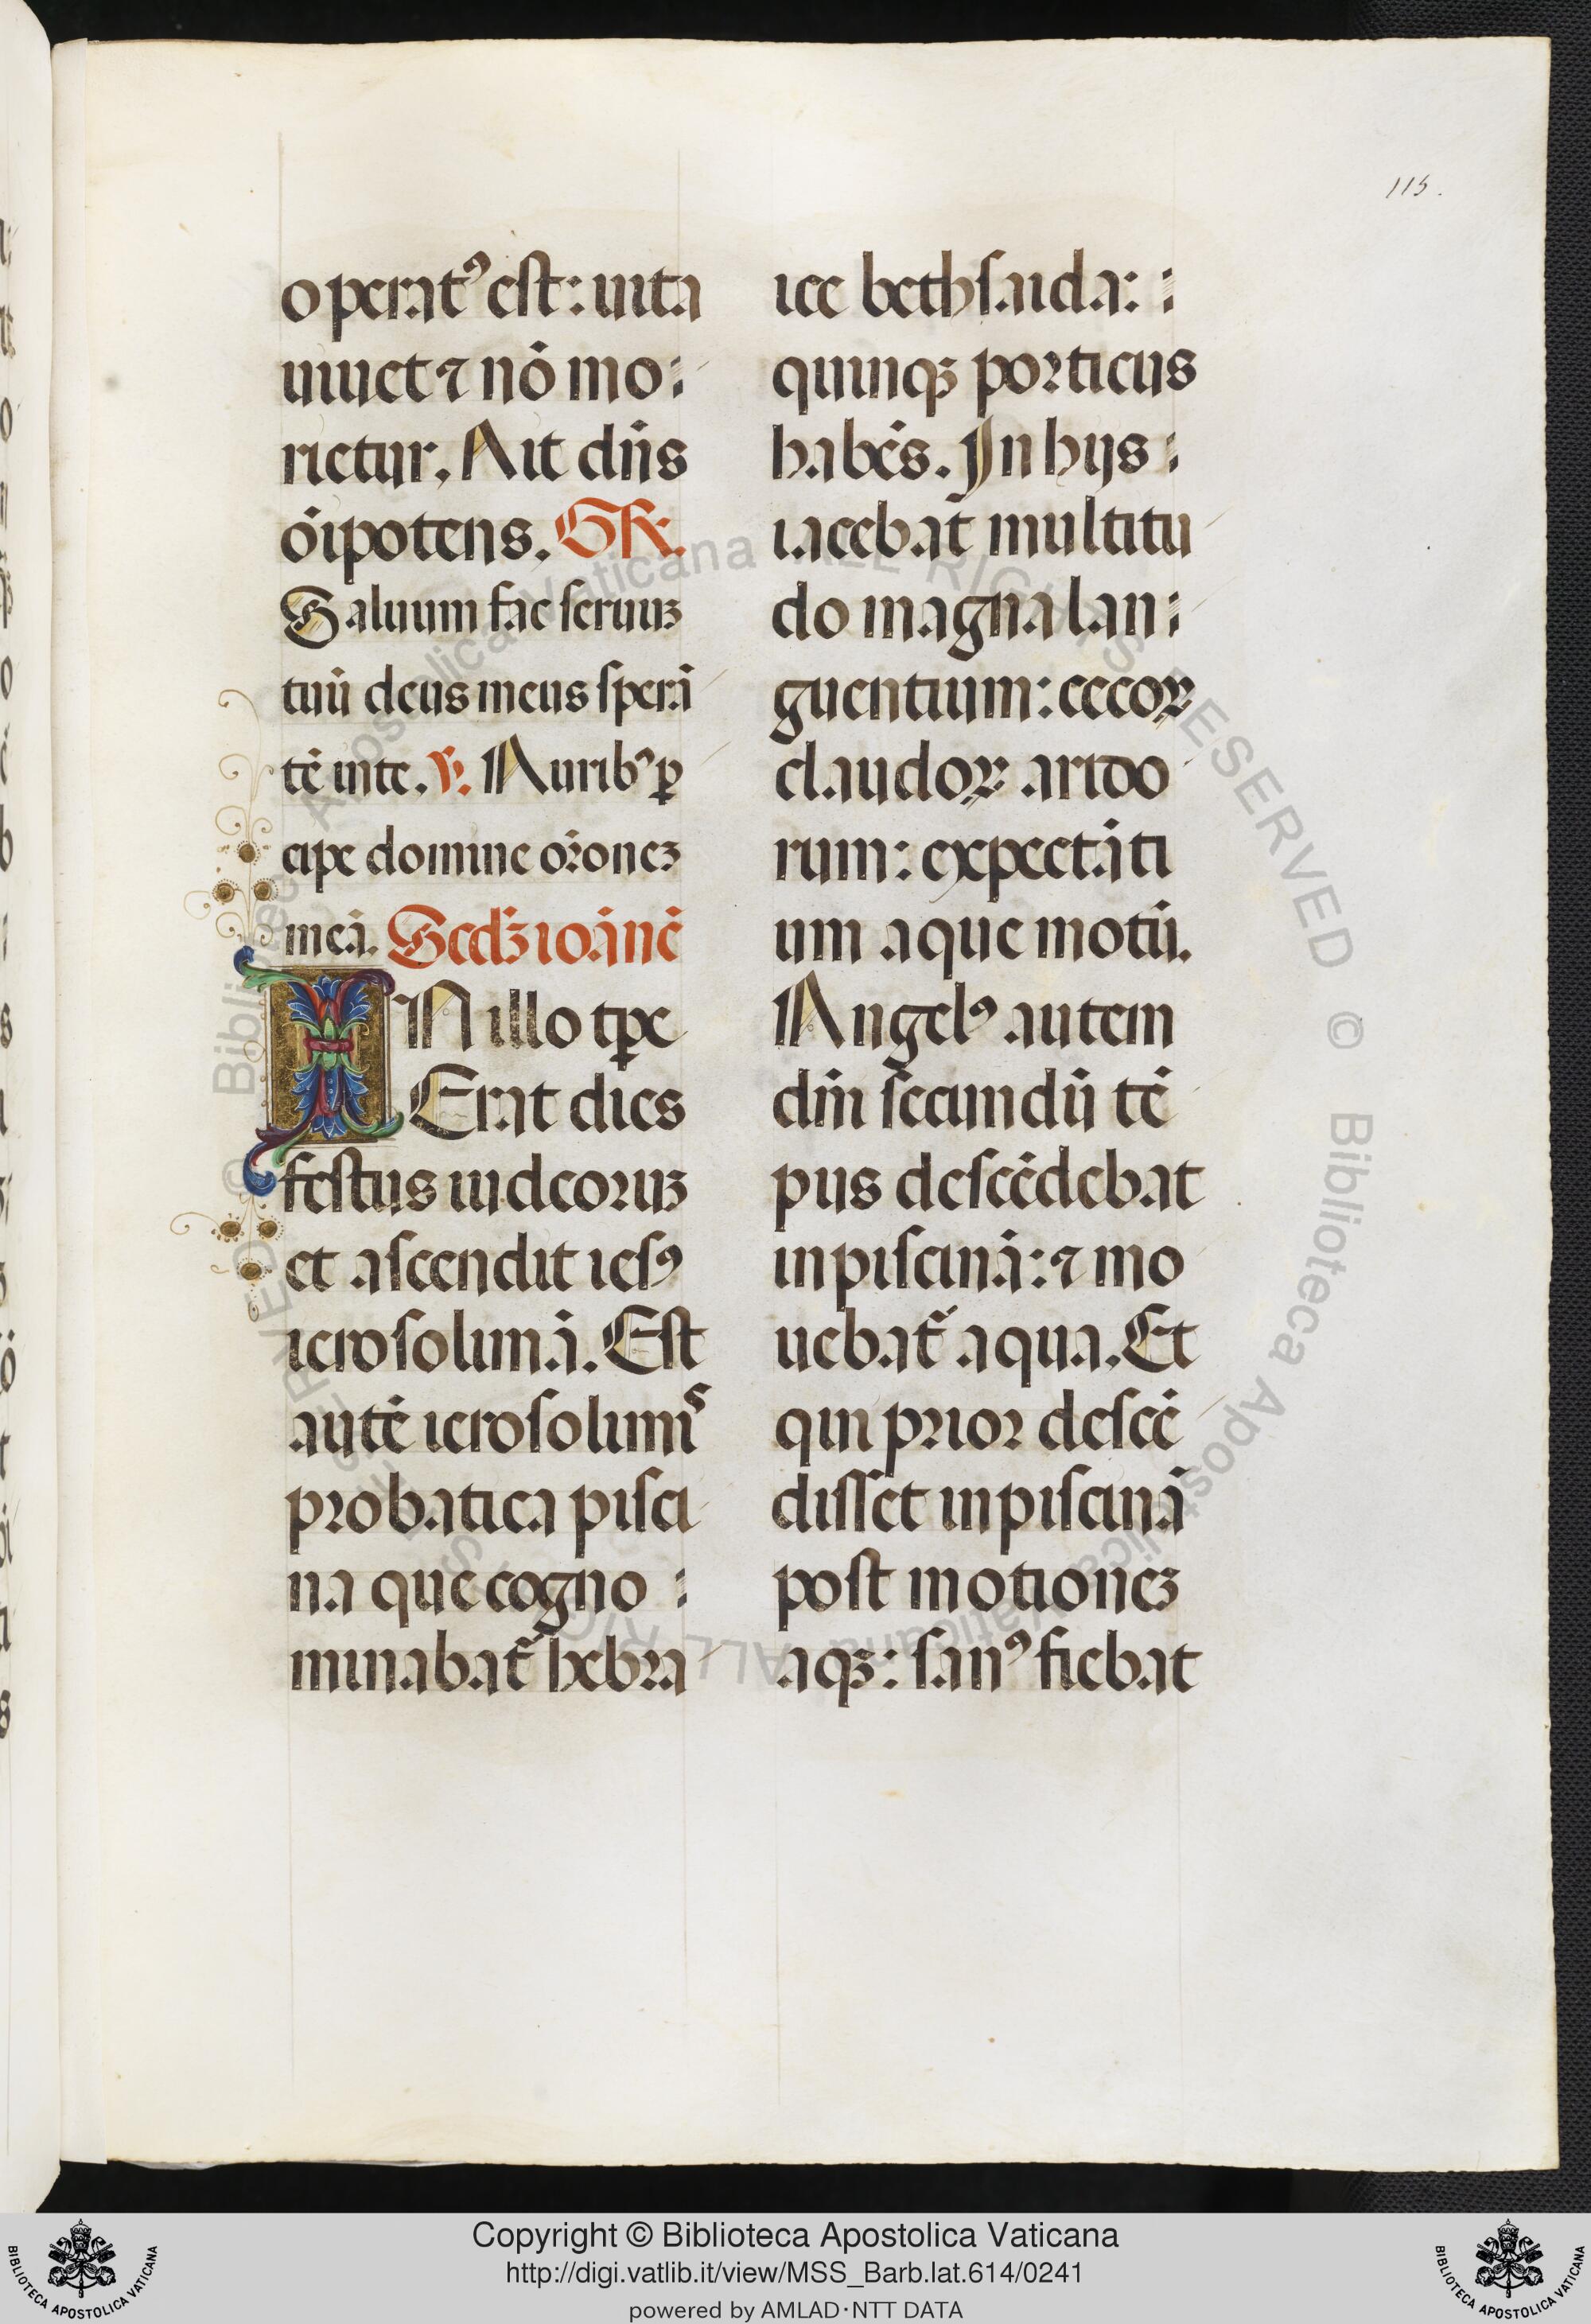 115.
operatꝰ est: uita
uiuet ⁊ nō mo:
rietur. Ait dn̄s
oīpotens. GR.
Saluum fac seruuꝫ
tuū deus meus sperā
tē in te. ℣. Auribꝰ ꝑ
cipe domine or̄oneꝫ
meā. Secdꝫ ioānē
IN illo tp̄e
Erat dies
festus iudeoruꝫ
et ascendit iesꝰ
ierosolimā. Est
autē ierosolimiˢ
probatica pisci
na que cogno :
minabat᷑ hebra
ice bethsaida: :
quinqꝫ porticus
habēs. In hijs :
iacebat̄ multitu
do magna lan:
guentium: cecoꝝ
claudoꝝ arido
rum: expectāti
um aque motū.
Angelꝰ autem
dn̄i secundū tē
pus descēdebat
in piscinā: ⁊ mo
uebat᷑ aqua. Et
qui prior descē
disset in piscinā
post motioneꝫ
aqꝫ: sanꝰ fiebat
© Biblioteca Apostolica Vaticana ALL RIGHTS RESERVED
© Biblioteca Apostolica Vaticana ALL RIGHTS RESERVED
Copyright © Biblioteca Apostolica Vaticana
http://digi.vatlib.it/view/MSS_Barb.lat.614/0241
powered by AMLAD·NTT DATA
BIBLIOTECA APOSTOLICA VATICANA
BIBLIOTECA APOSTOLICA VATICANA